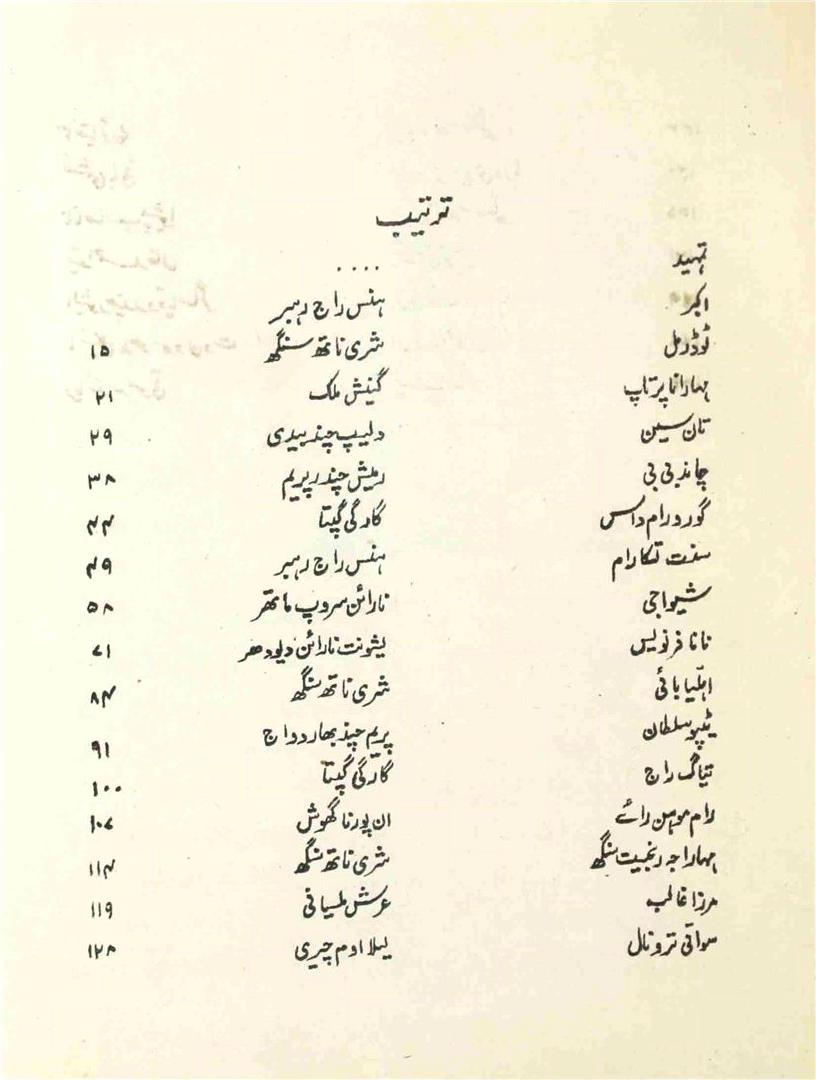 ترتیب
تمہید ....
اکبر ہنس راج رہبر
ٹوڈرمل شری ناتھ سنگھ ۱۵
مہارانا پرتاپ گنیش ملک ۲۱
تان سین دلیپ چندر بیدی ۲۹
چاند بی بی رمیش چندر پریم ۳۸
گورو رام داس گارگی گپتا ۴۴
سنت تکارام ہنس راج رہبر ۴۹
شیواجی نارائن سروپ ماتھر ۵۸
نانا فرنویس یشونت نارائن دیودھر ۷۱
اہلیا بائی شری ناتھ سنگھ ۸۴
ٹیپو سلطان پریم چند بھاردواج ۹۱
تیاگ راج گارگی گپتا ۱۰۰
رام موہن رائے ان پورنا گھوش ۱۰۷
مہاراجہ رنجیت سنگھ شری ناتھ سنگھ ۱۱۴
مرزا غالب عرش ملسیانی ۱۱۹
سواتی ترونال لیلا اوم چیری ۱۲۸